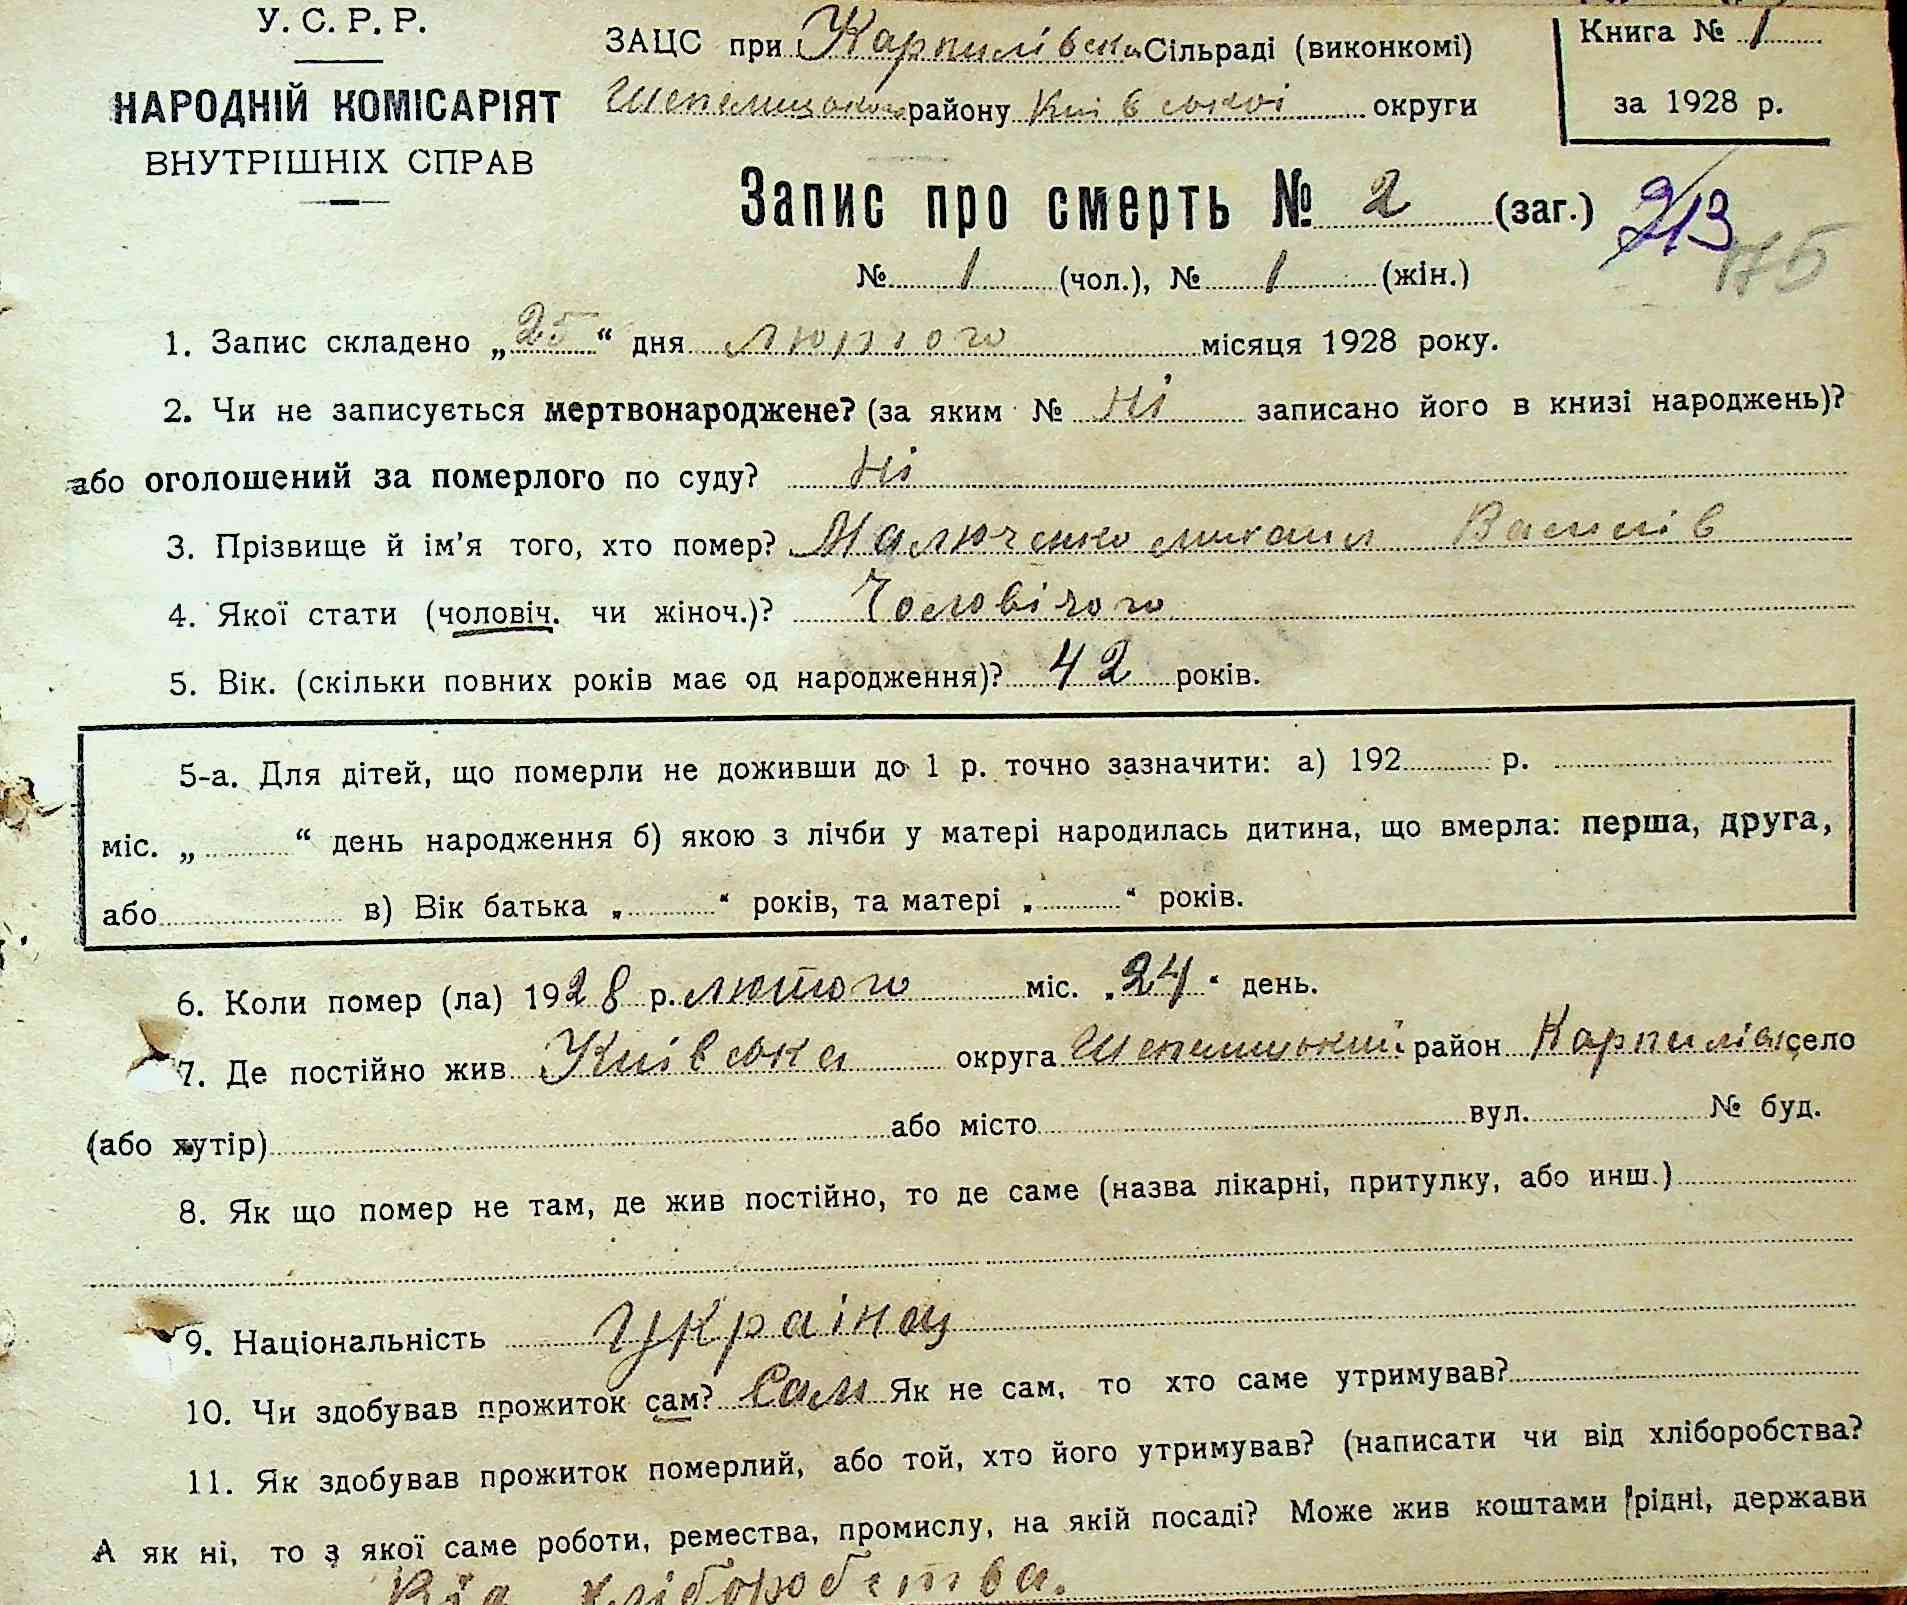 У. С. Р. Р.
НАРОДНІЙ КОМІСАРІЯТ
ВНУТРІШНІХ СПРАВ
ЗАЦС при Карпилівській Сільраді (виконкомі)
Шепелицького району Київської округи
Книга № 1
за 1928 р.
Запис про смерть № 2 (заг.) 213
175
№ 1 (чол.), № 1 (жін.)
1. Запис складено „25“ дня лютого місяця 1928 року.
2. Чи не записується мертвонароджене? (за яким № Ні записано його в книзі народжень)?
або оголошений за померлого по суду? Ні
3. Прізвище й ім'я того, хто помер? Малюченко михаил Василів
4. Якої стати (чоловіч. чи жіноч.)? Чоловічого
5. Вік. (скільки повних років має од народження)? 42 років.
5-а. Для дітей, що померли не доживши до 1 р. точно зазначити: а) 192 р.
міс. „ “ день народження б) якою з лічби у матері народилась дитина, що вмерла: перша, друга,
або в) Вік батька „ “ років, та матері „ “ років.
6. Коли помер (ла) 1928 р. лютого міс. „24“ день.
7. Де постійно жив Київська округа Шепелицький район Карпилівка село
(або хутір) або місто вул. № буд.
8. Як що помер не там, де жив постійно, то де саме (назва лікарні, притулку, або инш.)
9. Національність Українец
10. Чи здобував прожиток сам? Сам Як не сам, то хто саме утримував?
11. Як здобував прожиток померлий, або той, хто його утримував? (написати чи від хліборобства?
А як ні, то з якої саме роботи, ремества, промислу, на якій посаді? Може жив коштами рідні, держави
Від хліборобства.